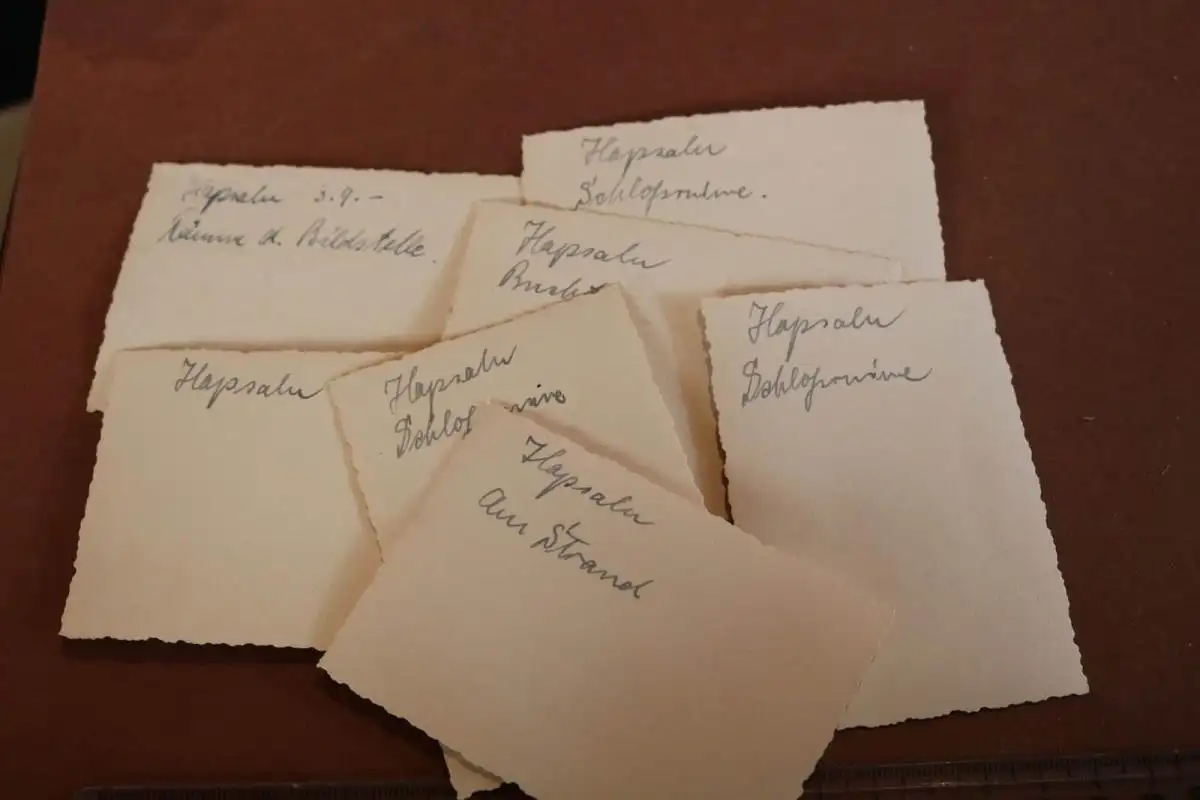 Hapsalu 3.9.-
Räume d. Bildstelle.
Hapsalu
Schloßruine.
Hapsalu
Hapsalu
Schloßruine
Hapsalu
Hapsalu
Schloß ruine
Hapsalu
Am Strand